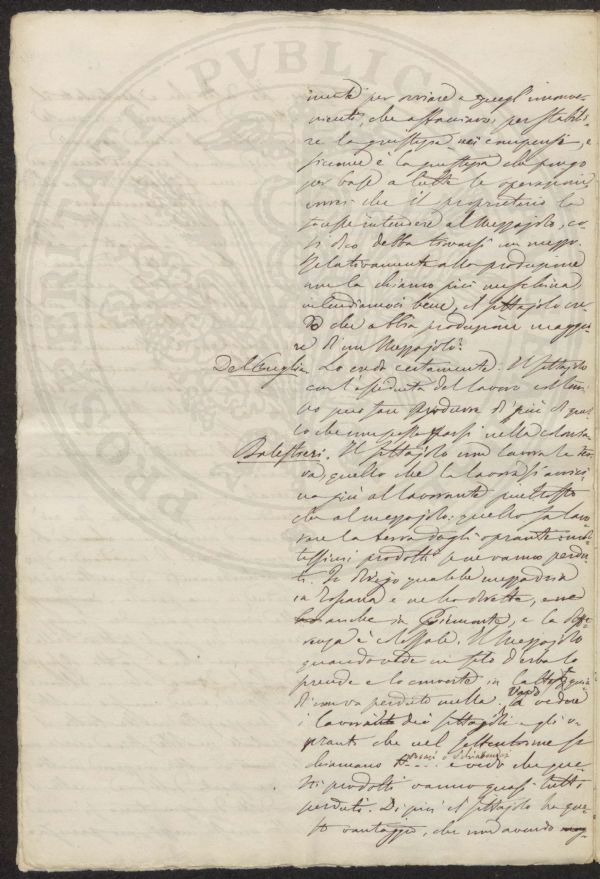 mente per ovviare a quegl'inconve-
nienti, che affacciavansi per stabili-
re la giustezza nei compensi, e
siccome è la giustezza che pongo
per base a tutte le operazioni
vorrei che il proprietario la
facesse intendere al Mezzajolo, co-
sì dico debba trovarsi un mezzo.
Relativamente alla produzione
non la chiamo più meschina
intendiamoci bene, il fittajolo cre-
do che abbia produzione maggio-
re di un Mezzajolo?
Lo credo certamente. Il fittajolo
con l'assiduità del lavoro e
può fare produrre di più di quel-
lo che non possa farsi nella colonia
Balestreri. Il fittajolo non lavora la ter-
ra, quello che la lavora si avvici-
na più al lavorante piuttosto
che al mezzajolo: quello fa lavo-
rare la terra dagli opranti e mol-
tissimi prodotti se ne vanno perdu-
ti. Io dirigo qualche mezzadria
in Toscana e ne ho dirette,
anche in Piemonte, e la diffe-
renza è
Il Mezzajolo
quando vede un filo d'erba lo
prende e lo converte in
di non va perduto nulla. Vado a vedere
i lavoranti dei fittajoli e gli o-
pranti che nel settentrione si
chiamano e vedo che que-
sti prodotti vanno quasi tutti
perduti. Di più il fittajolo ha que-
sto vantaggio, che non avendo